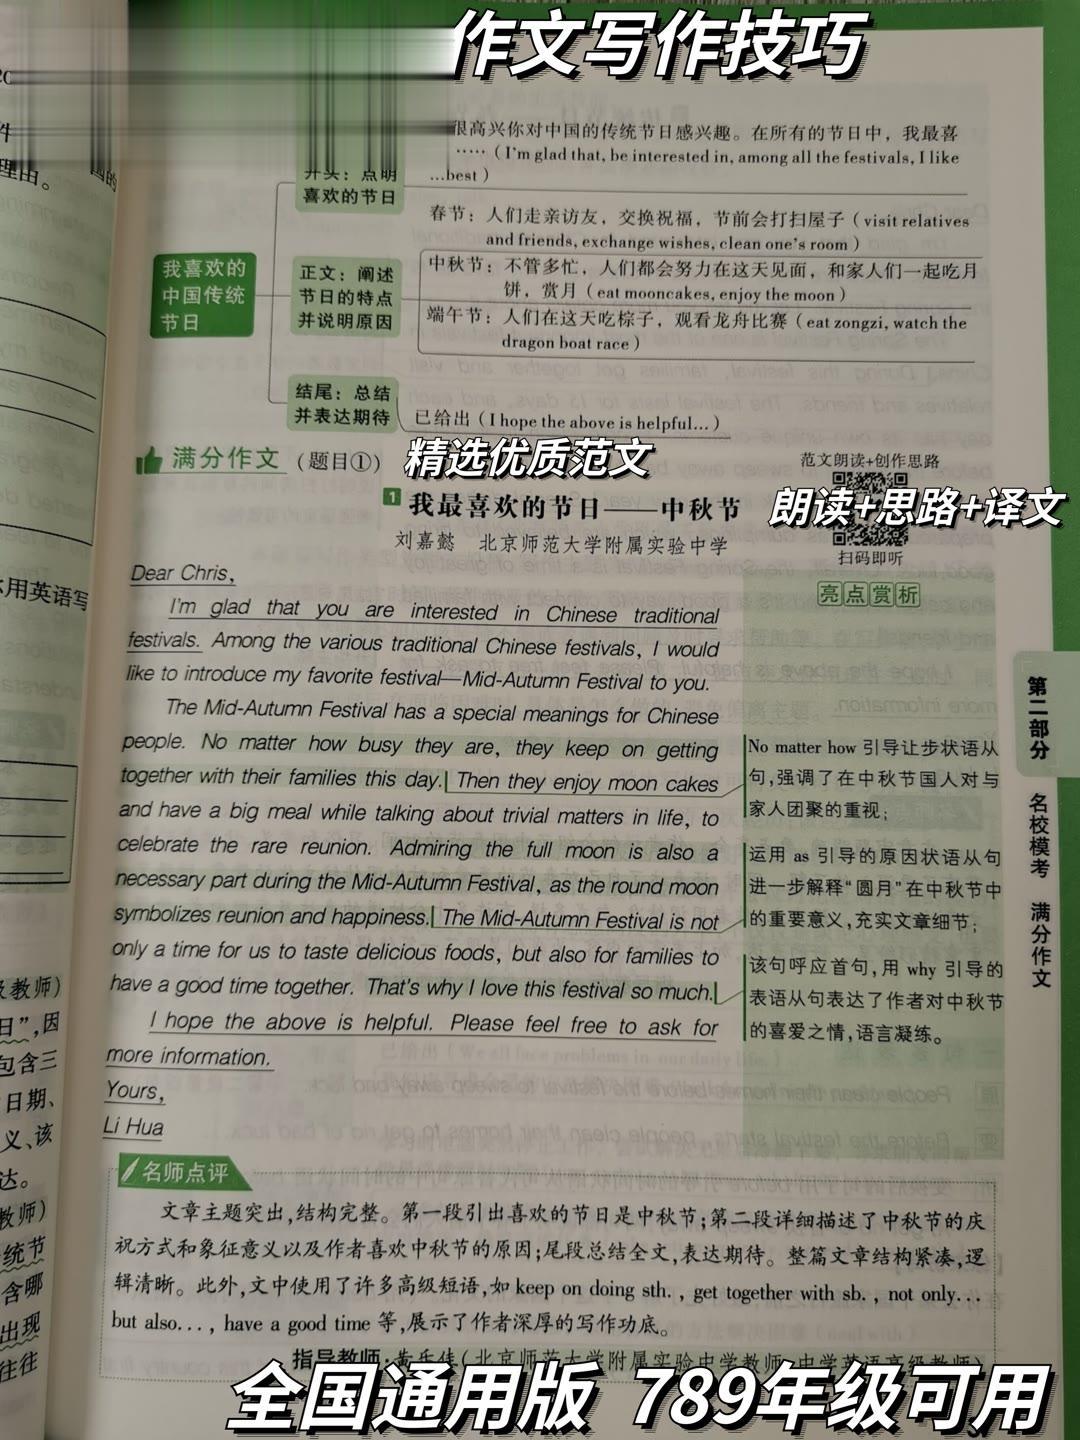 作文写作技巧
很高兴你对中国的传统节日感兴趣。在所有的节日中，我最喜
……（I'm glad that, be interested in, among all the festivals, I like
…best）
开头：点明
喜欢的节日
春节：人们走亲访友，交换祝福，节前会打扫屋子（visit relatives
and friends, exchange wishes, clean one's room）
我喜欢的
中国传统
节日
正文：阐述
节日的特点
并说明原因
中秋节：不管多忙，人们都会努力在这天见面，和家人们一起吃月
饼，赏月（eat mooncakes, enjoy the moon）
端午节：人们在这天吃粽子，观看龙舟比赛（eat zongzi, watch the
dragon boat race）
结尾：总结
并表达期待
已给出（I hope the above is helpful...）
满分作文（题目①）
精选优质范文
范文朗读+创作思路
朗读+思路+译文
扫码即听
1 我最喜欢的节日——中秋节
刘嘉懿 北京师范大学附属实验中学
亮点赏析
Dear Chris,
I'm glad that you are interested in Chinese traditional
festivals. Among the various traditional Chinese festivals, I would
like to introduce my favorite festival—Mid-Autumn Festival to you.
The Mid-Autumn Festival has a special meanings for Chinese
people. No matter how busy they are, they keep on getting
together with their families this day. Then they enjoy moon cakes
and have a big meal while talking about trivial matters in life, to
celebrate the rare reunion. Admiring the full moon is also a
necessary part during the Mid-Autumn Festival, as the round moon
symbolizes reunion and happiness. The Mid-Autumn Festival is not
only a time for us to taste delicious foods, but also for families to
have a good time together. That's why I love this festival so much.
I hope the above is helpful. Please feel free to ask for
more information.
Yours,
Li Hua
No matter how 引导让步状语从
句，强调了在中秋节国人对与
家人团聚的重视；
运用 as 引导的原因状语从句
进一步解释“圆月”在中秋节中
的重要意义，充实文章细节；
该句呼应首句，用 why 引导的
表语从句表达了作者对中秋节
的喜爱之情，语言凝练。
第二部分 名校模考 满分作文
名师点评
文章主题突出，结构完整。第一段引出喜欢的节日是中秋节；第二段详细描述了中秋节的庆
祝方式和象征意义以及作者喜欢中秋节的原因；尾段总结全文，表达期待。整篇文章结构紧凑，逻
辑清晰。此外，文中使用了许多高级短语，如 keep on doing sth. , get together with sb. , not only...
but also... , have a good time 等，展示了作者深厚的写作功底。
指导教师：黄乐佳（北京师范大学附属实验中学教师，中学英语高级教师）
全国通用版 789年级可用
理由。
用英语写
级教师）
日”，因
包含三
日期、
义、该
达。
教师）
统节
含哪
出现
往往